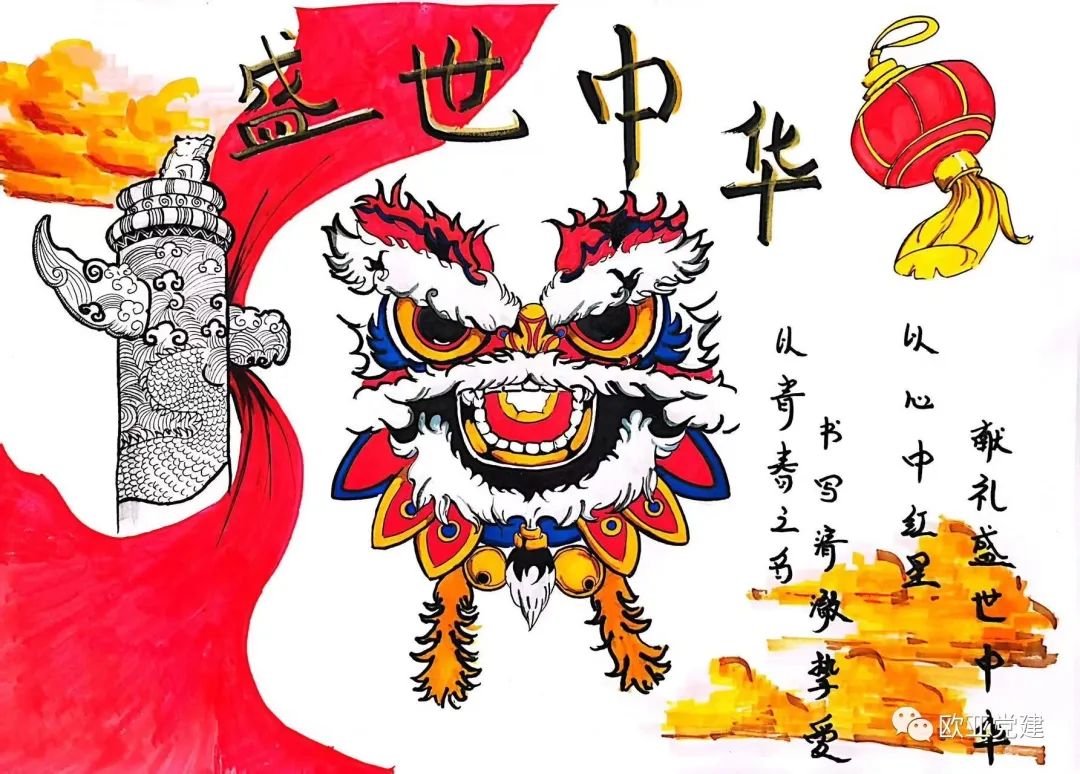 盛世中华
以青春之名
书写清澈挚爱
以心中红星
献礼盛世中华
欧亚党建